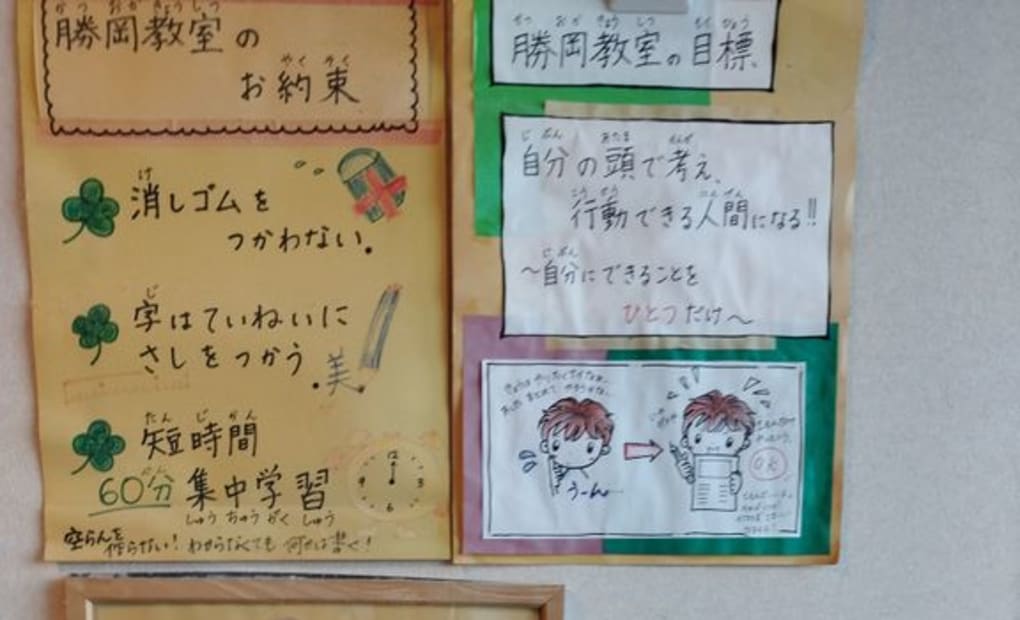 かつ おか きょうしつ
勝岡教室の
やく そく
お約束
け
消しゴムを
つかわない。
じ
字はていねいに
さしをつかう。
美
たん じ かん
短時間
ぷん
60分 集中学習
しゅう ちゅう がく しゅう
空らんを
作らない! わからなくても 何かは書く!
12
9 3
6
かつ おか きょう しつ もく ひょう
勝岡教室の目標
じ ぶん あたま かんが
自分の頭で考え、
こう どう にん げん
行動できる人間になる!!
じ ぶん
~自分にできることを
ひとつだけ~
うーん…
OK